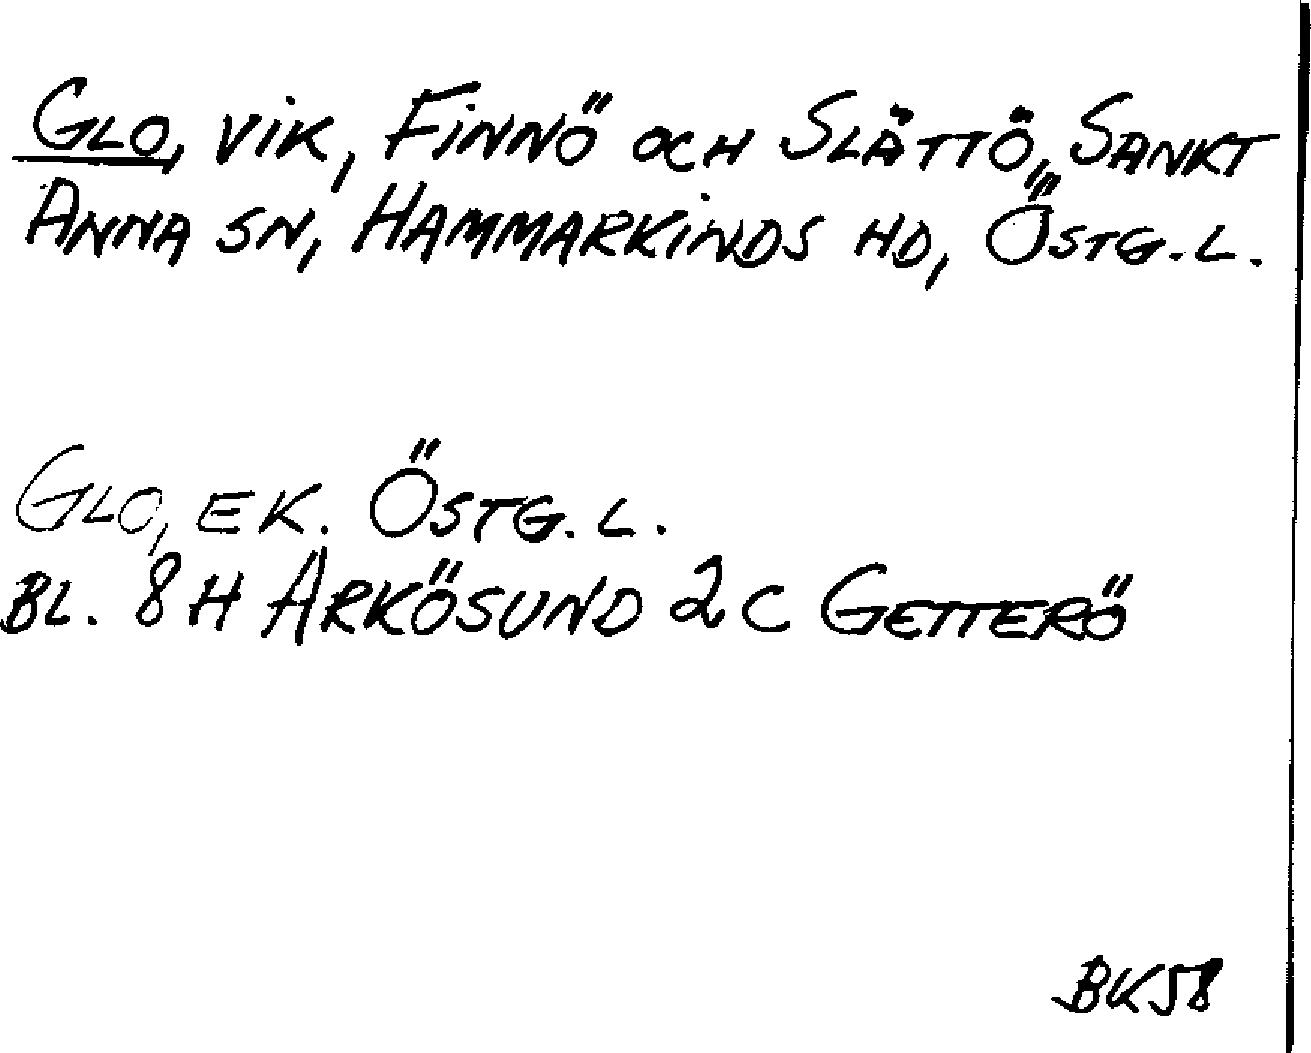 Glo, vik, Finnö och Slättö, Sankt
Anna sn, Hammarkinds hd, Östg.l.
Glo, ek. Östg.l.
Bl. 8H Arkösund 2c Getterö
BK58